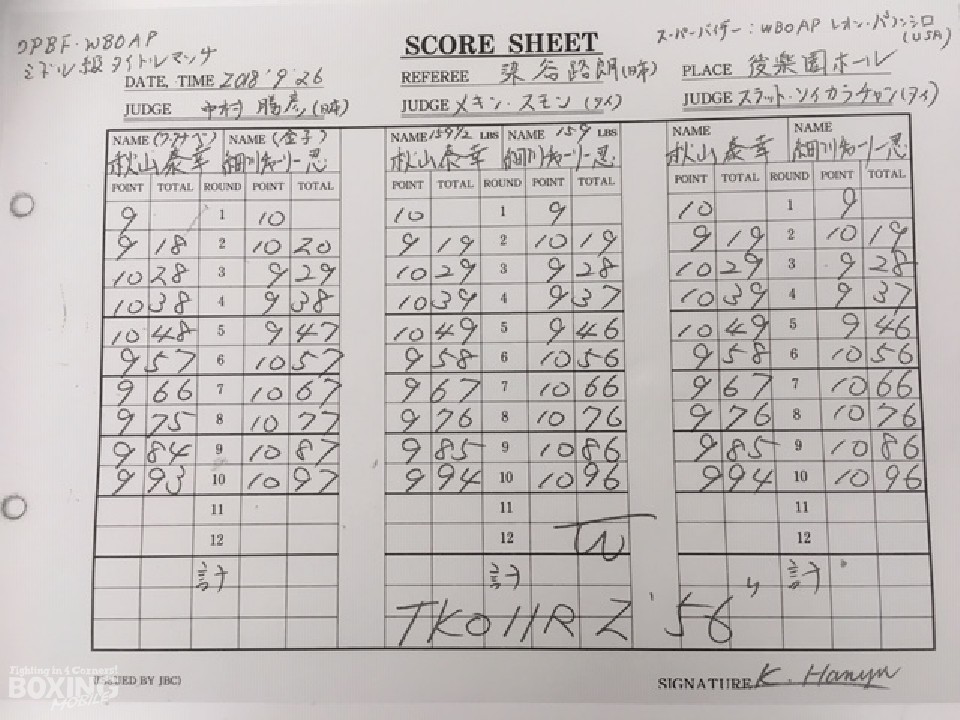 OPBF・WBOAP
ミドル級タイトルマッチ
SCORE SHEET
スーパーバイザー：WBOAP レオン・パノンシロ
(USA)
DATE, TIME 2018' 9. 26
REFEREE 染谷路朗(日本)
PLACE 後楽園ホール
JUDGE 中村 勝彦(日本)
JUDGE メキン・スモン(タイ)
JUDGE スラット・ソイカラチャン(タイ)
NAME (ワタナベ) NAME (金子) NAME 159 1/2 LBS NAME 159 LBS NAME NAME
秋山泰幸 細川チャーリー忍 秋山泰幸 細川チャーリー忍 秋山泰幸 細川チャーリー忍
POINT TOTAL ROUND POINT TOTAL POINT TOTAL ROUND POINT TOTAL POINT TOTAL ROUND POINT TOTAL
9 1 10 10 1 9 10 1 9
9 18 2 10 20 9 19 2 10 19 9 19 2 10 19
10 28 3 9 29 10 29 3 9 28 10 29 3 9 28
10 38 4 9 38 10 39 4 9 37 10 39 4 9 37
10 48 5 9 47 10 49 5 9 46 10 49 5 9 46
9 57 6 10 57 9 58 6 10 56 9 58 6 10 56
9 66 7 10 67 9 67 7 10 66 9 67 7 10 66
9 75 8 10 77 9 76 8 10 76 9 76 8 10 76
9 84 9 10 87 9 85 9 10 86 9 85 9 10 86
9 93 10 10 97 9 94 10 10 96 9 94 10 10 96
11 11 11
12 12 12
計 計 計
TKO 11R 2' 56"
Fighting in 4 Corners!
BOXING
MOBILE
ISSUED BY JBC)
SIGNATURE K. Hanyu